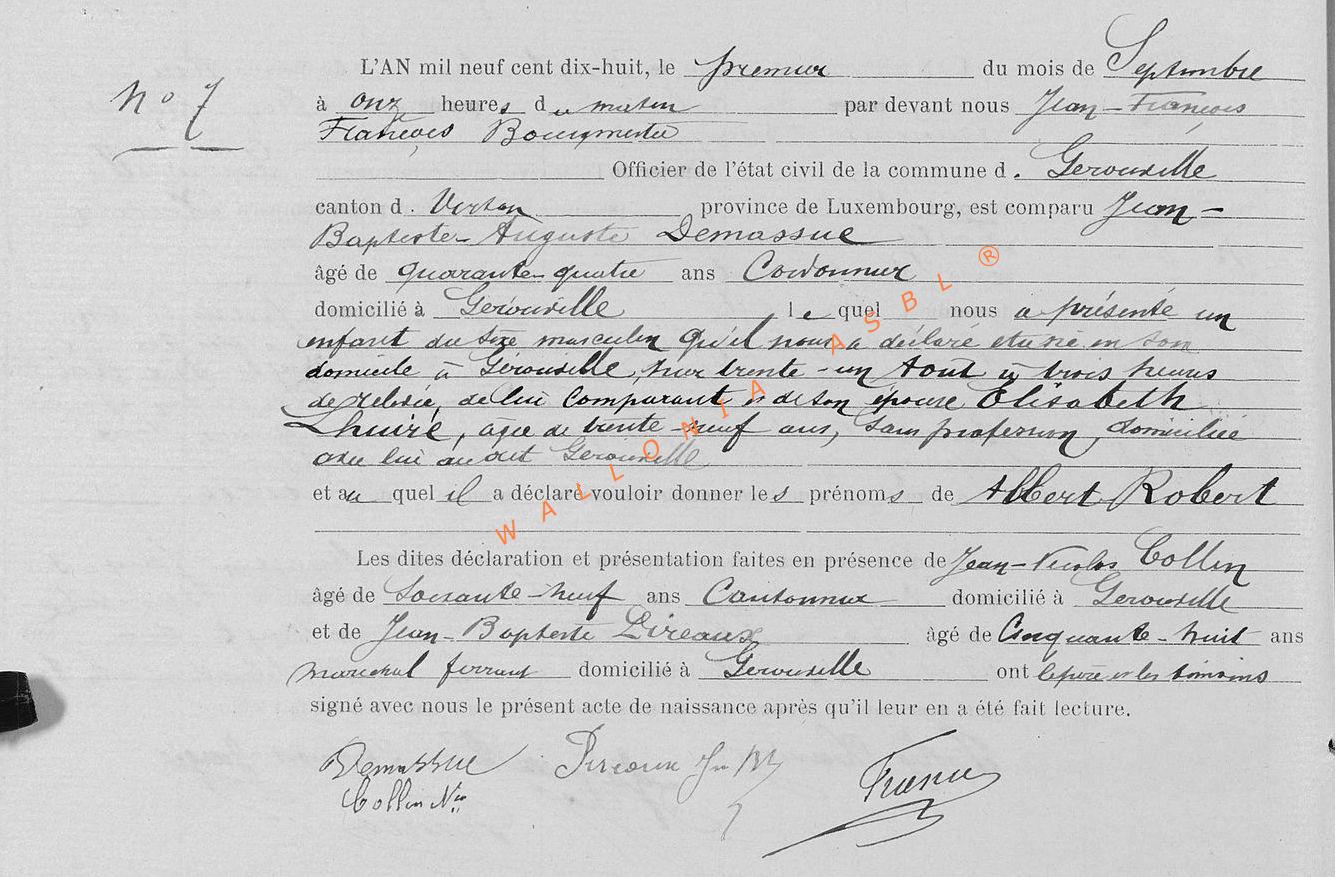 No 7
L'AN mil neuf cent dix-huit, le premier du mois de Septembre
à onz heures du matin par devant nous Jean-François
François Bourgmestre
Officier de l'état civil de la commune d. Gérouville
canton d. Virton province de Luxembourg, est comparu Jean-
Baptiste-Auguste Demassue
âgé de quarante-quatre ans Cordonnier
domicilié à Gérouville lequel nous a présenté un
enfant du sexe masculin qu'il nous a déclaré etre né en son
domicile à Gérouville, hier trente-un Août à trois heures
de relevée, de lui Comparant et de son épouse Elisabeth
Lhuire, agée de trente-neuf ans, Sans profession, domiciliée
avec lui au dit Gérouville
et au quel il a déclaré vouloir donner les prénoms de Albert Robert
Les dites déclaration et présentation faites en présence de Jean-Nicolas Collin
âgé de Soixante-neuf ans Cantonnier domicilié à Gérouville
et de Jean-Baptiste Pireaux âgé de Cinquante-huit ans
maréchal ferrant domicilié à Gérouville ont le père et les témoins
signé avec nous le présent acte de naissance après qu'il leur en a été fait lecture.
Demassue
Collin Nas
WALLONIA ASBL ®